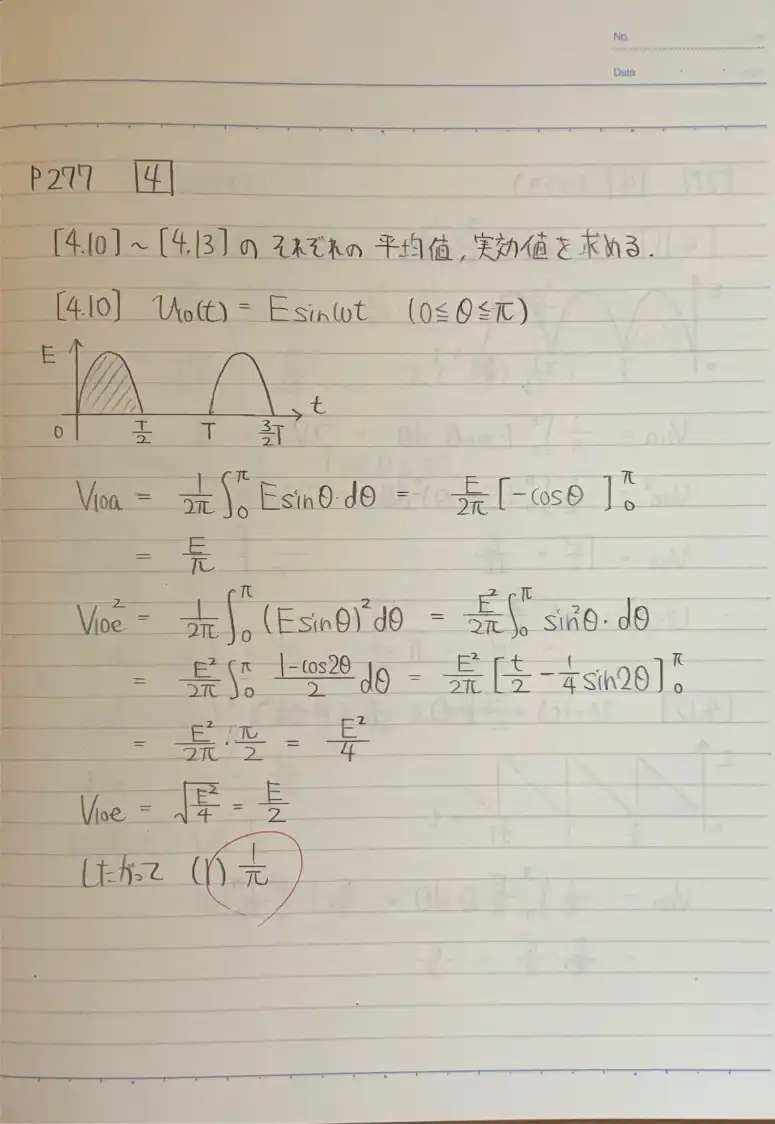 No.
Date
P277 [4]
[4.10]～[4.13]のそれぞれの平均値,実効値を求める.
[4.10] v₁₀(t) = E sinωt (0≦θ≦π)
E
0 T/2 T 3/2T t
V₁₀a = 1/2π ∫₀^π E sinθ·dθ = E/2π [-cosθ]₀^π
= E/π
V₁₀e² = 1/2π ∫₀^π (E sinθ)² dθ = E²/2π ∫₀^π sin²θ·dθ
= E²/2π ∫₀^π (1-cos2θ)/2 dθ = E²/2π [t/2 - 1/4 sin2θ]₀^π
= E²/2π · π/2 = E²/4
V₁₀e = √(E²/4) = E/2
したがって (1) 1/π